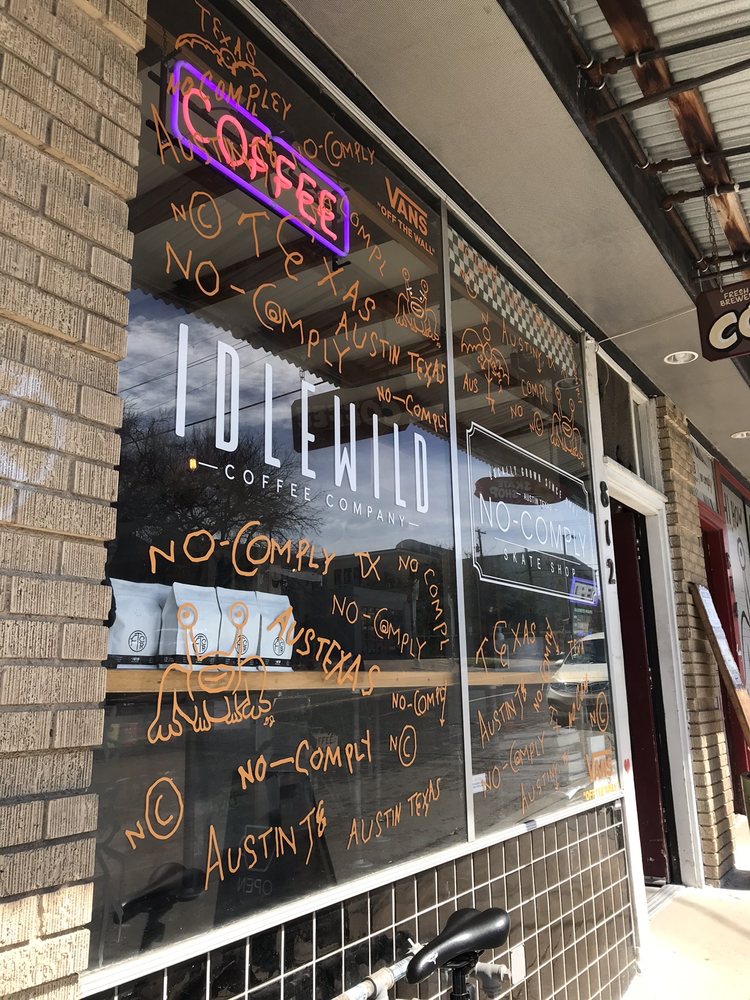 TEXAS
NO COMPLEY
COFFEE
AUSTIN
NO-COMPLY
VANS
"OFF THE WALL"
N©
TEXAS
COMPL
NO-COMPLY
AUSTIN TEXAS
NO-COMPLY
AUSTIN TX
AUS
COMPL
NO
FRESH
BREWED
CO
IDLEWILD
COFFEE COMPANY
LOCALLY GROWN SINCE
AUSTIN TEXAS
NO-COMPLY
SKATE SHOP
812
NO-COMPLY TX
NO COMPL
NO-COMPLY
AUSTEXAS
TEXAS
NO-COMPLY
NO-COMPLY
N©
N©
AUSTIN TX
AUSTIN TEXAS
AUSTIN TX
NO-COMPLY
N©
AUSTIN
VANS
OPEN